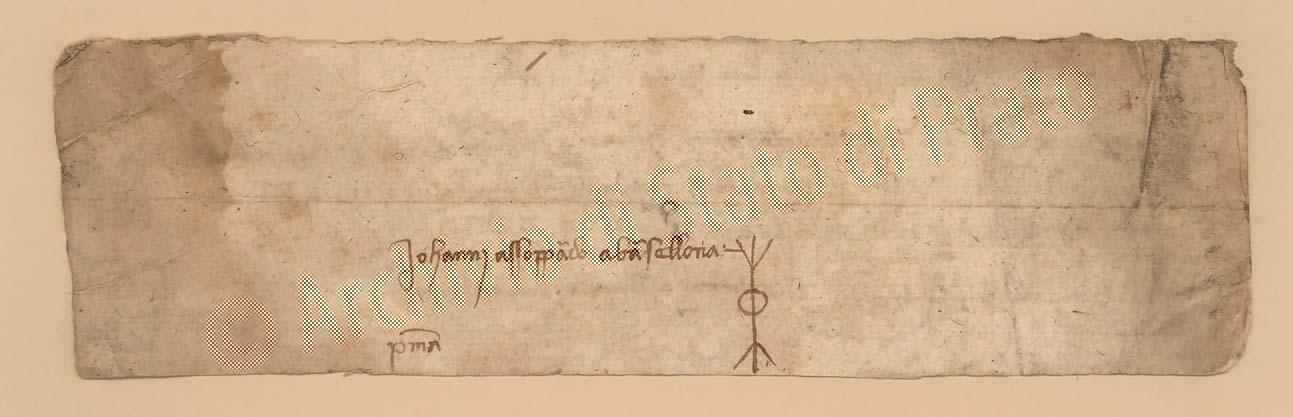 Johannj assopprado a barsellona
prima
© Archivio di Stato di Prato